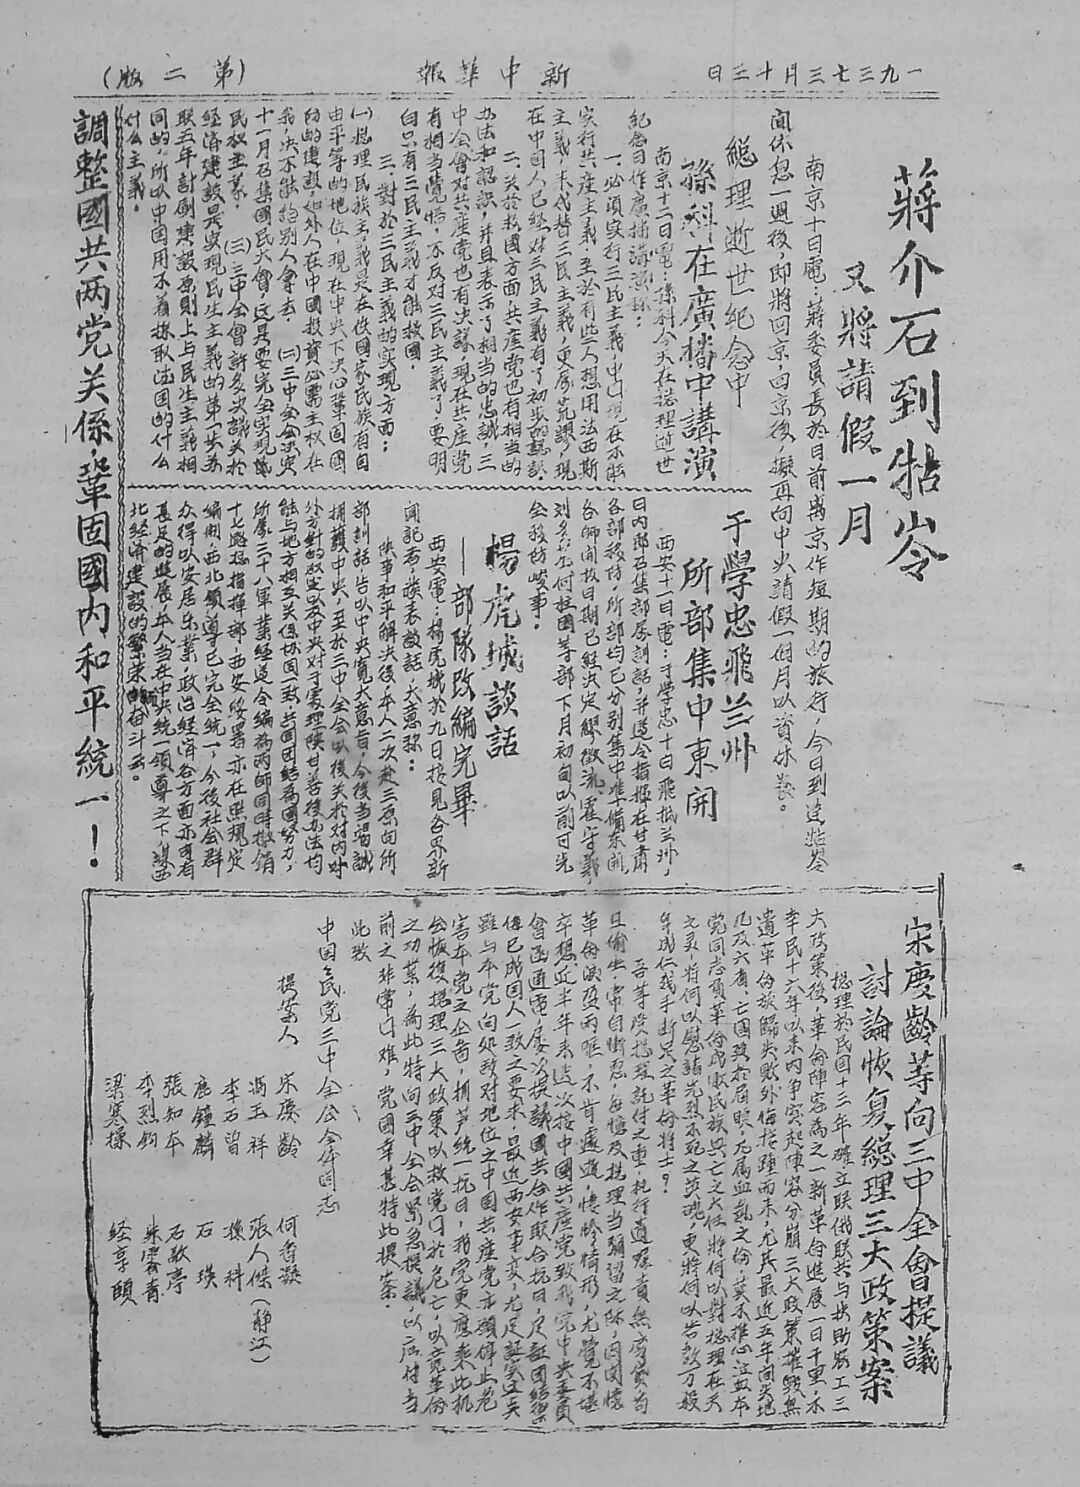 一九三七三月十三日
新中華報
(第二版)
蔣介石到牯岺
又將請假一月
南京十日電：蔣委員長於日前离京作短期的旅行，今日到達牯岺
聞休息一週後，即將回京，回京後，擬再向中央請假一個月以資休養。
總理逝世紀念中
孫科在廣播中講演
南京十二日電：孫科今天在總理逝世
紀念日作廣播講演称：
一、必須实行三民主義，中山現在不能
实行共産主義，至於有些人想用法西斯
主義，来代替三民主義，更属荒謬，現
在中国人已經对三民主義有了初步的認識
二、关於救國方面，共産党也有相当的
办法和認識，并且表示了相当的忠誠，三
中全會对共産党也有决議，現在共産党
有相当覺悟，不反对三民主義了，要明
白只有三民主義才能救國。
三、對於三民主義的实現方面：
(一)總理民族主義是在使國家民族有自
由平等的地位，現在中央下决心鞏固國
防的建設，如外人在中國投資必需主权在
我，决不能給別人拿去。(二)三中全会决定
十一月召集國民大會，这是要完全实現
民权主義 (三)三中全會許多决議关於
經濟建設是实現民生主義的第一步，蘇
联五年計劃建設原則上与民生主義相
同的，所以中国用不着採取法国的什么
什么主義。
于學忠飛兰州
所部集中東開
西安十一日電：于學忠十日飛抵兰州，
日内即召集部属訓話，并遵令指揮在甘肅
各部移防，所部均已分別集中準備东開，
各師開拔日期已經决定繆徵流、霍守義，
刘多荃、何柱國等部下月初旬以前可完
全移防峻事。
楊虎城談話
——部隊改編完畢
西安電：楊虎城於九日接見各界新
聞記者，發表談話，大意称：
陝事和平解决後，本人二次赴三原向所
部訓話，告以中央寬大意旨，今後当竭誠
擁護中央，至於三中全会以後关於对内对
外方針的决定以及中央对于處理陝甘善後办法均
能与地方相互关係协同一致，共同团結為國努力，
所属三十八軍業經遵令編為两師，同時撤銷
十七路總指揮部，西安綏署亦在照規定
編制西北領導已完全統一，今後社会群
众得以安居乐業，政治經濟各方面亦可有
長足的進展，本人当在中央統一領導之下謀西
北經濟建設的繁荣的奋斗云。
調整國共两党关係，鞏固國内和平統一！
宋慶齡等向三中全會提議
討論恢复總理三大政策案
總理於民国十三年確立联俄联共与扶助农工三
大政策後，革命陣容為之一新革命進展一日千里，不
幸民十六年以来内爭突起陣容分崩三大政策摧毀無
遺革命旋歸失敗外侮接踵而来，尤其最近五年間失地
几及六省，亡國現於眉睫，凡属血氣之倫，莫不推心泣血本
党同志負革命成敗民族興亡之大任將何以對總理在天
之灵，將何以慰諸先烈不死之英魂，更將何以告数万殺
身成仁残手断足之革命將士？
吾等受總理託付之重，扥行遺囑責無旁貸，苟
且偷生，常自慚恧，每憶及總理当彌留之际，内閣懷
革命淚盈两眶，不肯遽逝，悽慘情形，尤覺不堪
卒想，近半年来迭次接中國共産党致我党中央委員
會函通電，屡次提議國共合作联合抗日，足証团結禦
侮已成国人一致之要求，最近西安事変，尤足証实這点
雖与本党向処敌对地位之中国共産党亦願停止危
害本党之企圖，擁护統一抗日，我党更應乘此机
会恢復總理三大政策，以救党国於危亡，以竟革命
之功業，為此特向三中全会緊急提議，以应付当
前之非常国难，党國幸甚特此提案。
此致
中国国民党三中全会全体同志
提案人
宋慶齡 何香凝
馮玉祥 張人傑(静江)
李石曾 孫科
鹿鍾麟 石瑛
張知本 石敬亭
李烈鈞 朱霽青
梁寒操 経亨頤